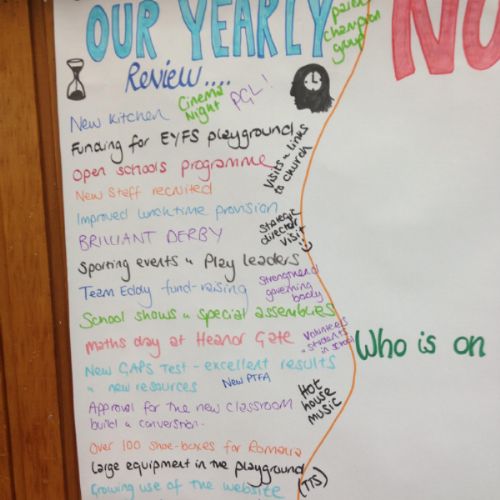 OUR YEARLY
Review....
parent
champion
group
NO
Cinema
Night
PGL!
New Kitchen
Funding for EYFS playground
Open schools programme
New Staff recruited
Visits & links
to church
Improved lunchtime provision
BRILLIANT DERBY
Strategic
director
visit
Sporting events & Play leaders
Team Eddy fund-raising
Strengthened
governing
body
School shows & special assemblies
maths day at Heanor Gate
Volunteers
& students
in school
Who is on
New GAPS Test - excellent results
& new resources
New PTFA
Hot
house
music
Approval for the new classroom
build & conversion.
Over 100 shoe-boxes for Romania
Large equipment in the playground
(TTS)
Growing use of the website